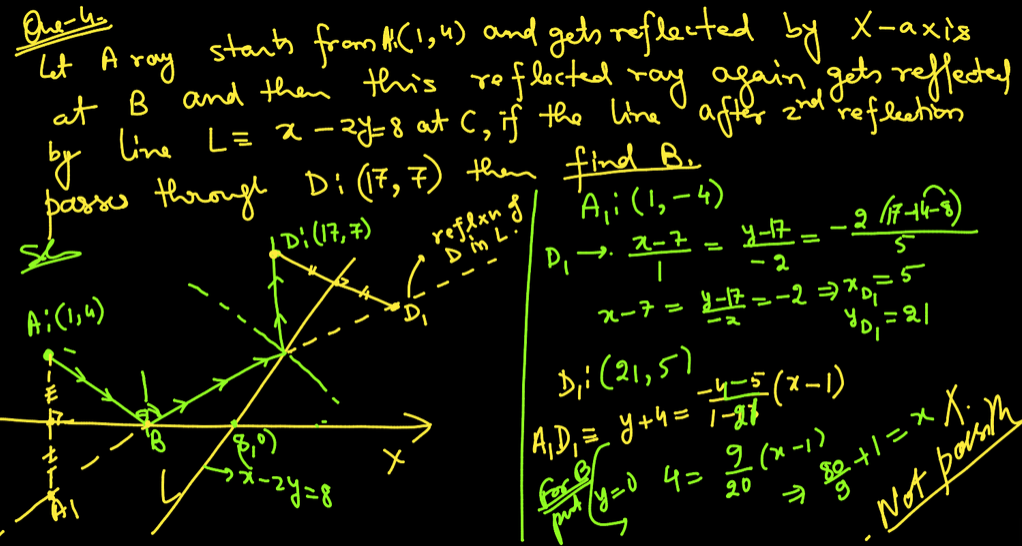 Que-4.
Let A ray starts from A:(1,4) and gets reflected by X-axis
at B and then this reflected ray again gets reflected
by line L≡ x-2y=8 at C, if the line after 2nd reflection
passes through D:(17,7) then find B.
Sol
D:(17,7)
reflxn of
D in L.
A:(1,4)
D1
B
(8,0)
X
L
x-2y=8
A1
A1:(1,-4)
D1 → x-7/1 = y-17/-2 = -2(17-14-8)/5
x-7 = y-17/-2 = -2 ⇒ xD1=5
yD1=21
D1:(21,5)
A1D1 ≡ y+4 = -4-5/1-21 (x-1)
For B put y=0 4 = 9/20 (x-1) ⇒ 80/9 +1 = x X.
Not possible